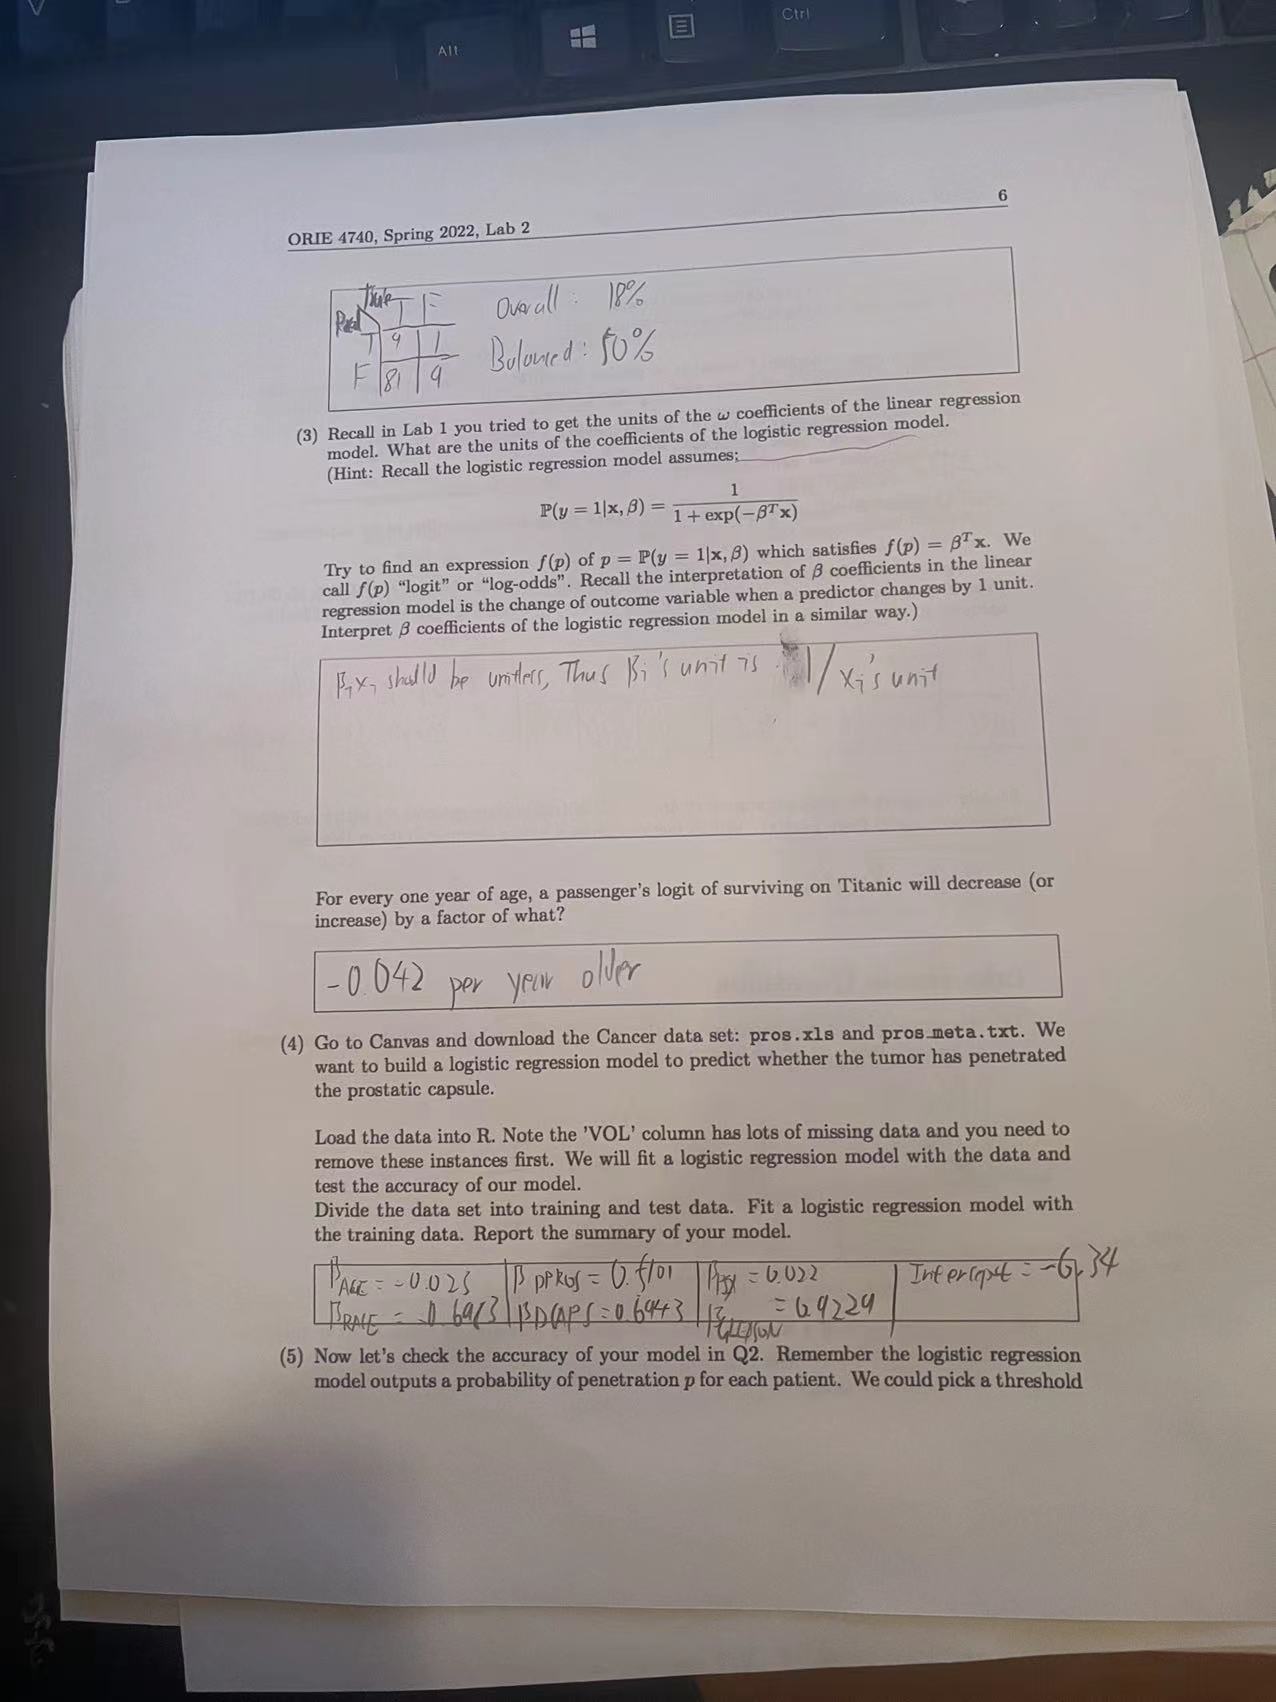 Alt
Ctrl
6
ORIE 4740, Spring 2022, Lab 2
T F
T 9 1
F 81 9
Overall : 18%
Balanced : 50%
(3) Recall in Lab 1 you tried to get the units of the ω coefficients of the linear regression
model. What are the units of the coefficients of the logistic regression model.
(Hint: Recall the logistic regression model assumes:
ℙ(y = 1|x, β) = 1 / (1 + exp(−βᵀx))
Try to find an expression f(p) of p = ℙ(y = 1|x, β) which satisfies f(p) = βᵀx. We
call f(p) “logit” or “log-odds”. Recall the interpretation of β coefficients in the linear
regression model is the change of outcome variable when a predictor changes by 1 unit.
Interpret β coefficients of the logistic regression model in a similar way.)
βᵢxᵢ should be unitless, Thus βᵢ's unit is 1/xᵢ's unit
For every one year of age, a passenger's logit of surviving on Titanic will decrease (or
increase) by a factor of what?
-0.042 per year older
(4) Go to Canvas and download the Cancer data set: pros.xls and pros_meta.txt. We
want to build a logistic regression model to predict whether the tumor has penetrated
the prostatic capsule.
Load the data into R. Note the 'VOL' column has lots of missing data and you need to
remove these instances first. We will fit a logistic regression model with the data and
test the accuracy of our model.
Divide the data set into training and test data. Fit a logistic regression model with
the training data. Report the summary of your model.
β AGE = -0.025 β DPROS = 0.5101 = 0.022 Intercept = -6.34
β RACE = β DCAPS = 0.6943 β GLEASON = 0.9229
(5) Now let's check the accuracy of your model in Q2. Remember the logistic regression
model outputs a probability of penetration p for each patient. We could pick a threshold